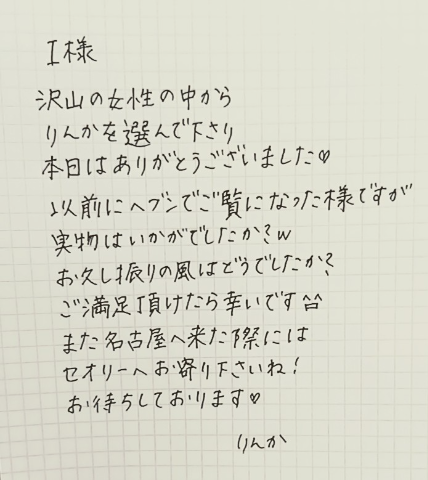 I様
沢山の女性の中から
りんかを選んで下さり
本日はありがとうございました♡
以前にヘブンでご覧になった様ですが
実物はいかがでしたか?w
お久し振りの風はどうでしたか?
ご満足頂けたら幸いです^^
また名古屋へ来た際には
セオリーへお寄り下さいね!
お待ちしております♡
りんか